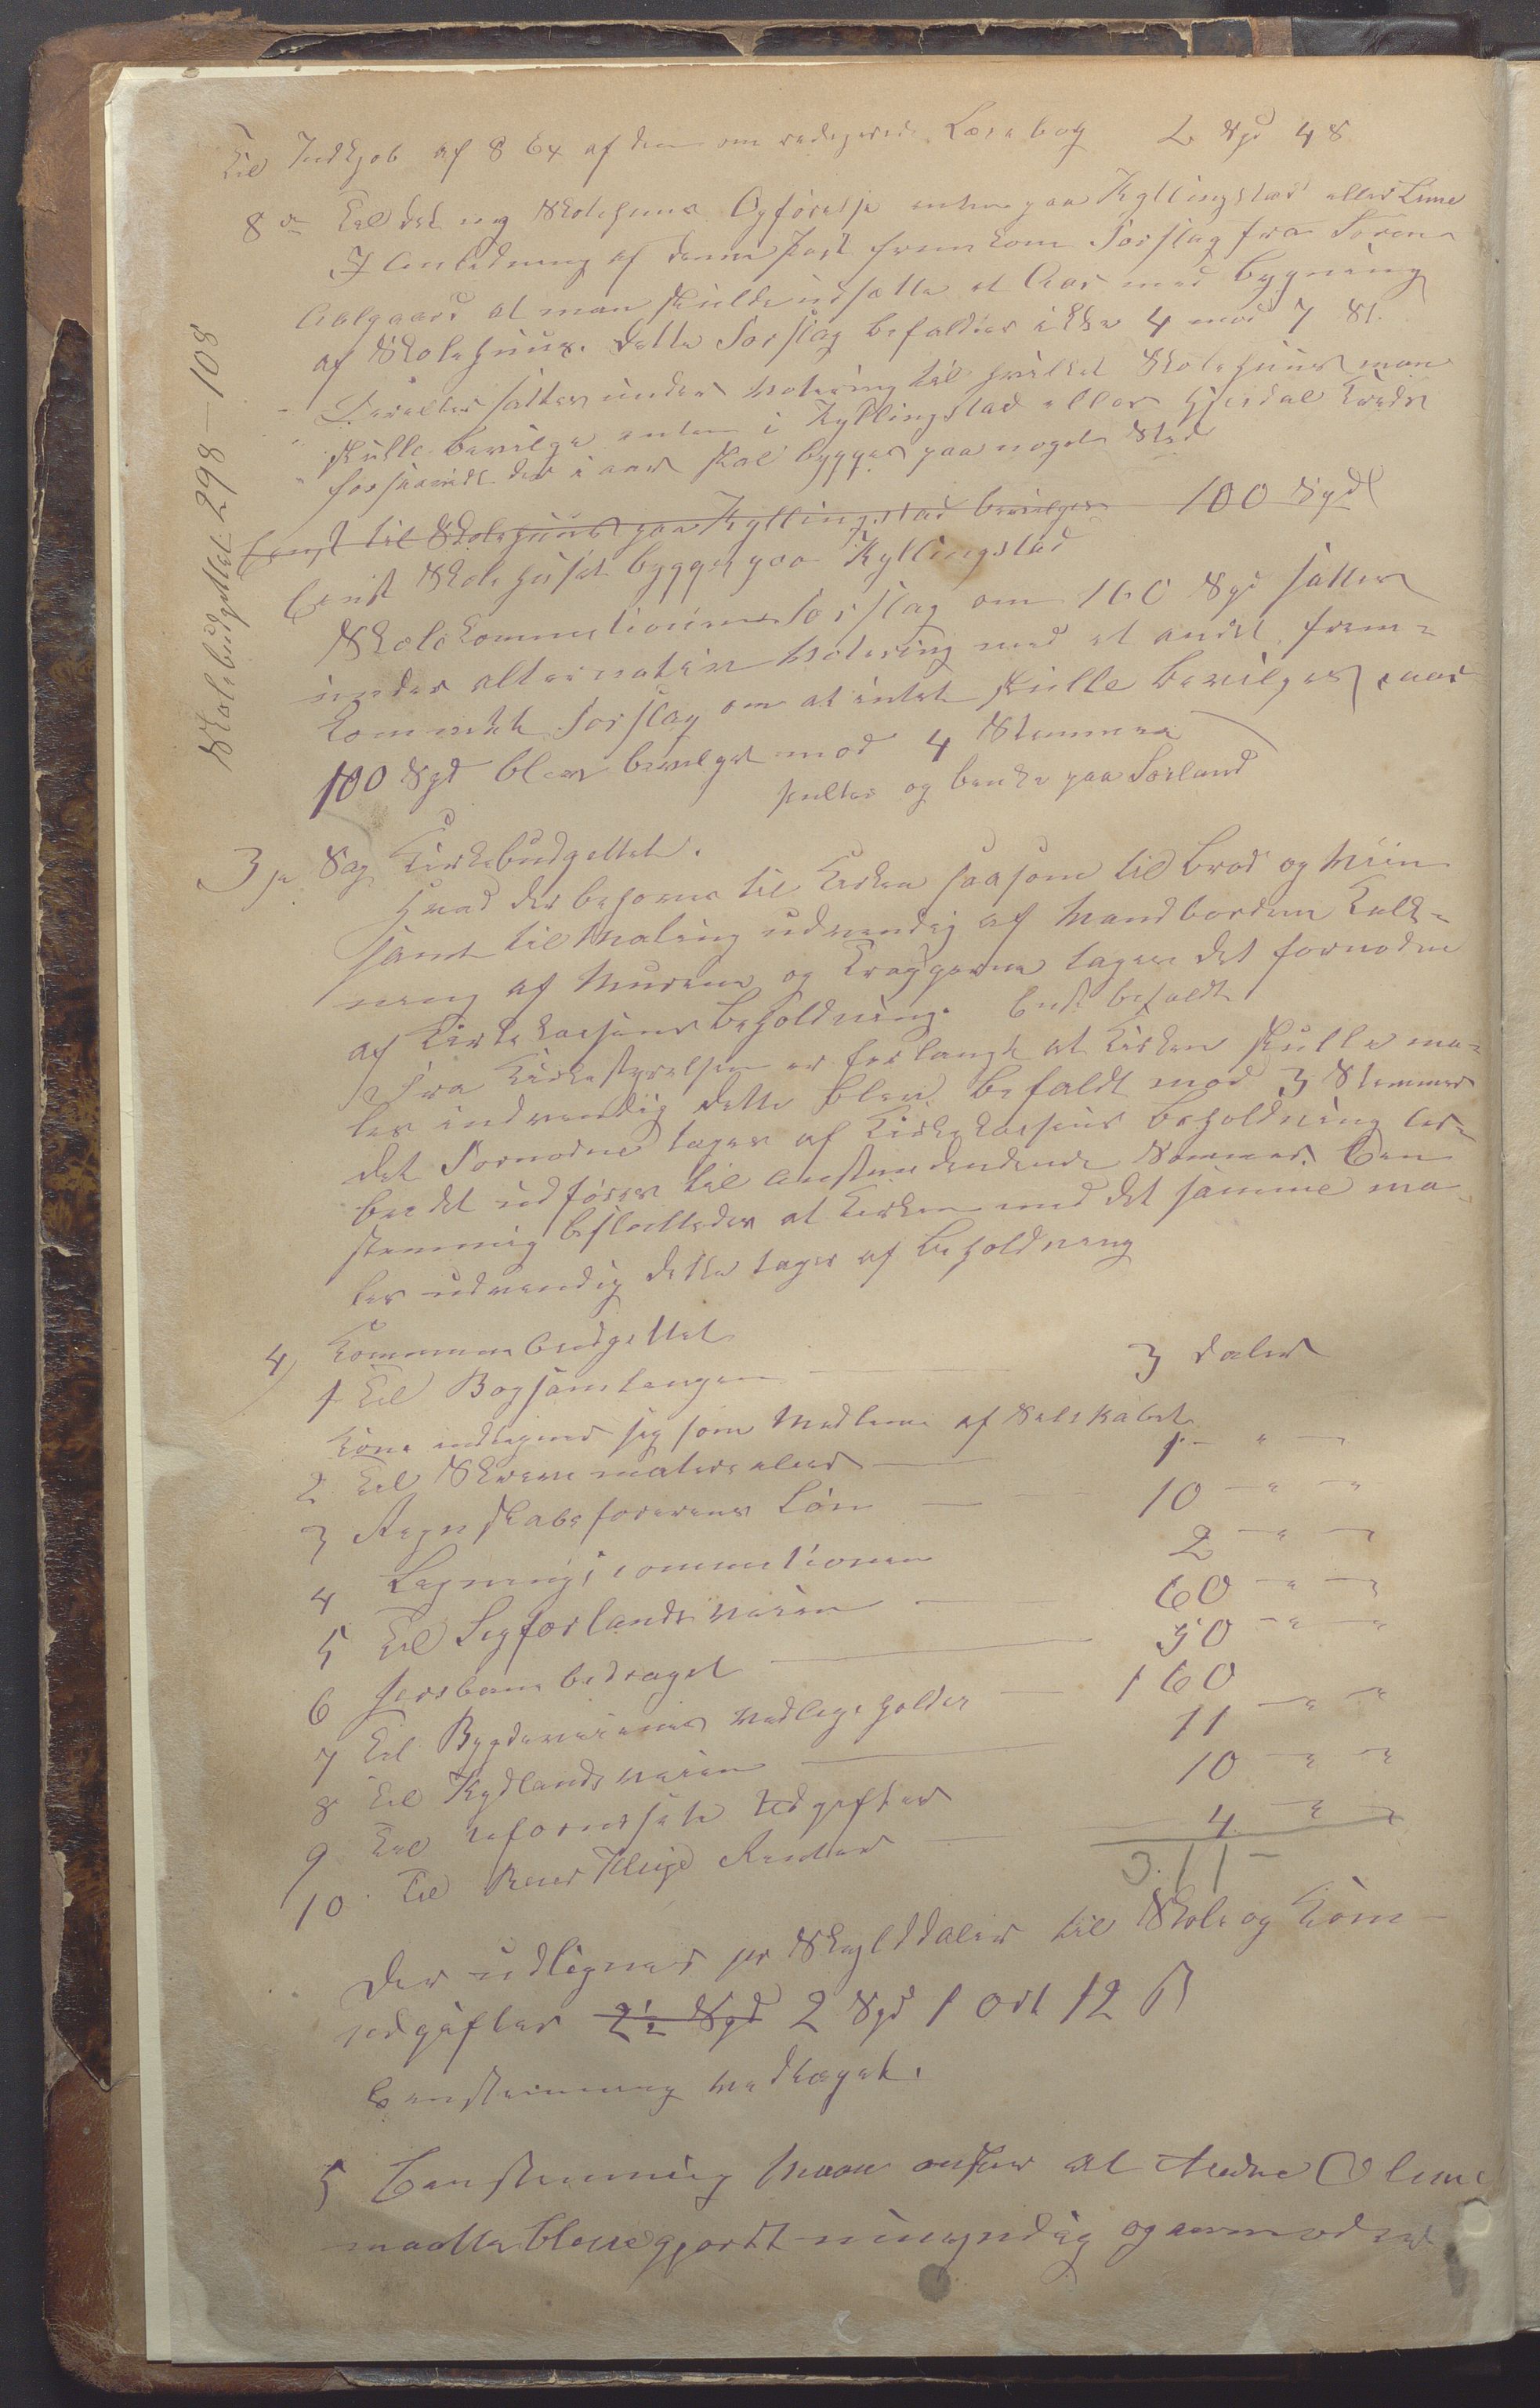 Til Indkjøb af 8 Ex af den om redigerede Læsebog 2 Spd 48
8de Til det ny Skolehuus Opførelse enten paa Kyllingstad eller Lime
I Anledning af denne Post fremkom Forslag fra Søren
Aalgaard at man skulde udsætte et Aar med bygning
af Skolehuus. Dette Forslag befaldtes ikke 4 mod 7 St.
Derefter sattes under Votering til hvilket Skolehuus man
skulle bevilge enten i Kyllingstad eller Gjesdal Kreds
forsaavidt der i aar skal bygges paa noget Sted
Eenst til Skolehuus paa Kyllingstad bevilges 100 Spdl
Eenst Skolehuset bygges paa Kyllingstad
Skolekommitionens Forslag om 160 Spd sattes
under alternativ Votering med et andet frem-
kommet Forslag om at intet skulle bevilges i aar
100 Spd blev bevilget mod 4 Stemmer
pulter og benke paa Sørland
Skolebudgettet 298-108
3je Sag Kirkebudgettet.
Hvad der behøves til Kirken saasom til brød og Viin
samt til Maling udvendig af Vandbordene Kalk-
ning af Murene og Trapperne tages det fornødne
af Kirkekassens beholdning. Enst befaldt
Fra Kirkestyrelsen er forlangt at Kirken skulle ma-
les indvendig dette blev befaldt mod 3 Stemmer
det Fornødne tages af Kirkekassens beholdning Ar-
beidet udføres til Anstundendende Sommer. Een
stemmig besluttedes at Kirken med det samme ma-
les udvendig dette tages af beholdning
4) Kommunebudgettet
1 Til Bogsamlangen 3 daler
Kom. indtegner sig som Medlem af Selskabet
2 Til Skrivematerialier 1 - " -
3 Regnskabsførerens Løn 10 - " "
4 Ligningscommitionen 2 - " -
5 Til Sigforlandsveien 60 - " -
6 Jernbane bedraget 50 - " "
7 Til Bygdeveienes vedligeholdes 160
8 Til Kydlandsveien 11 - " "
9 Til uforudsete Udgifter 10 - " "
10 Til Renter 4 - " -
311 -
Der udlignes pr Skylddaler til Skole og Kom-
udgifter 2½ Spd 2 Spd 1 Ort 12 ß
Eenstemmig vedtaget.
5 Eenstemmig Man ønsker at Lime
maatte blive gjordt umyndig og anmoder